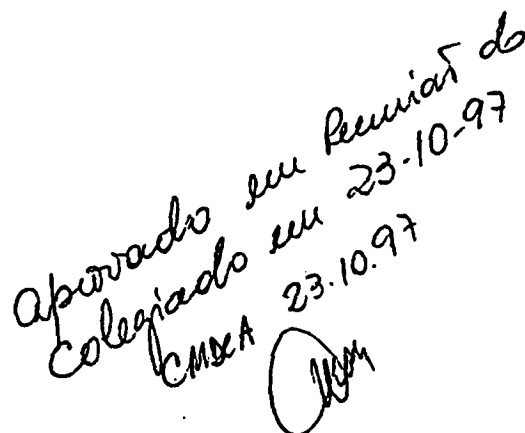 Aprovado em Reunião do
Colegiado em 23-10-97
23.10.97